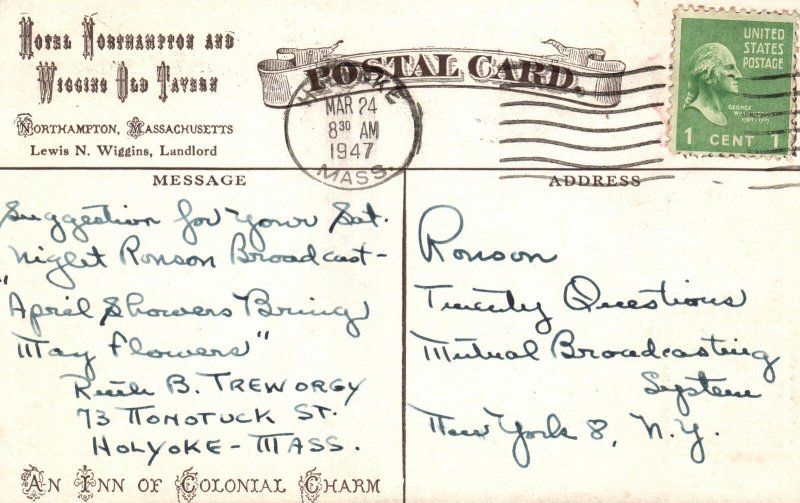 Hotel Northampton and
Wiggins Old Tavern
Northampton, Massachusetts
Lewis N. Wiggins, Landlord
POSTAL CARD.
HOLYOKE
MAR 24
8 30 AM
1947
MASS.
UNITED
STATES
POSTAGE
GEORGE
WASHINGTON
1789-1797
1 CENT 1
MESSAGE
Suggestion for your Sat.
night Ronson Broadcast-
"April Showers Bring
May Flowers"
Ruth B. TREWORGY
73 NONOTUCK ST.
HOLYOKE - MASS.
ADDRESS
Ronson
Twenty Questions
Mutual Broadcasting
System
New York 8, N.Y.
An Inn of Colonial Charm